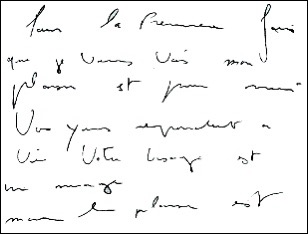 Pour la Première fois
que je vous vois mon
plaisir est pour moi
Vos yeux répondent a
Votre visage est
un
mais le plaisir est